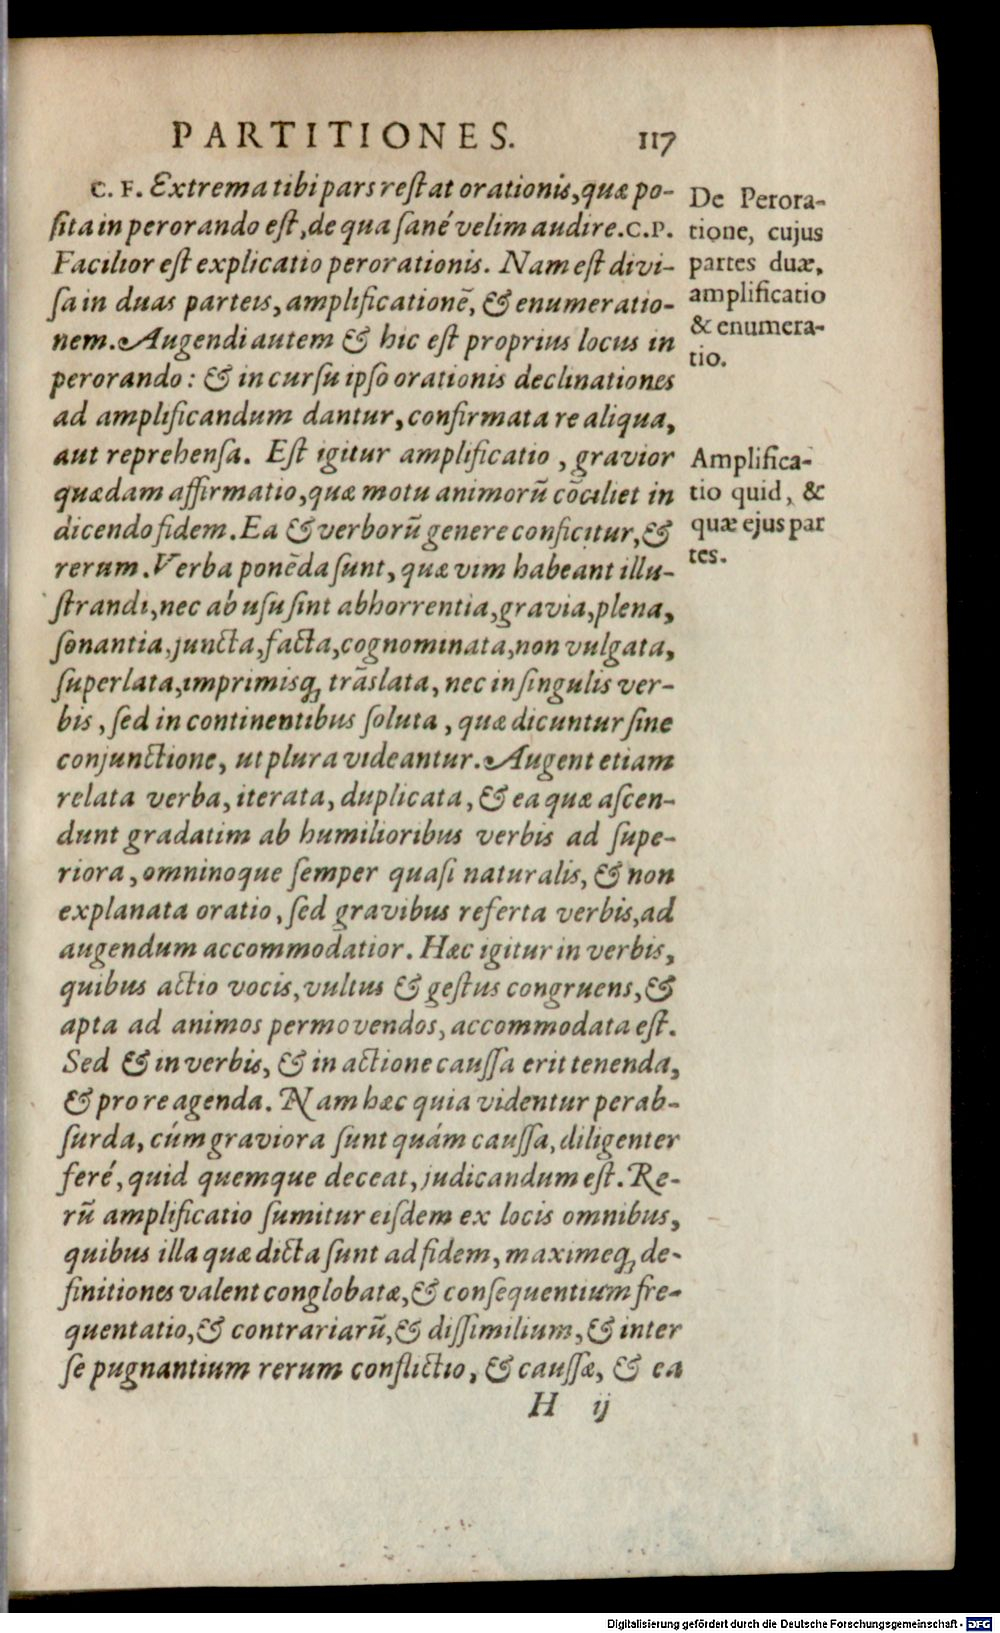 PARTITIONES. 117
C. F. Extrema tibi pars restat orationis, quæ po-
sita in perorando est, de qua sané velim audire. C.P.
Facilior est explicatio perorationis. Nam est divi-
sa in duas parteis, amplificationē, & enumeratio-
nem. Augendi autem & hic est proprius locus in
perorando: & in cursu ipso orationis declinationes
ad amplificandum dantur, confirmata re aliqua,
aut reprehensa. Est igitur amplificatio, gravior
quædam affirmatio, quæ motu animorū cōciliet in
dicendo fidem. Ea & verborū genere conficitur, &
rerum. Verba ponēda sunt, quæ vim habeant illu-
strandi, nec ab usu sint abhorrentia, gravia, plena,
sonantia, juncta, facta, cognominata, non vulgata,
superlata, imprimisq; trāslata, nec in singulis ver-
bis, sed in continentibus soluta, quæ dicuntur sine
conjunctione, ut plura videantur. Augent etiam
relata verba, iterata, duplicata, & ea quæ ascen-
dunt gradatim ab humilioribus verbis ad supe-
riora, omninoque semper quasi naturalis, & non
explanata oratio, sed gravibus referta verbis, ad
augendum accommodatior. Hæc igitur in verbis,
quibus actio vocis, vultus & gestus congruens, &
apta ad animos permovendos, accommodata est.
Sed & in verbis, & in actione caussa erit tenenda,
& pro re agenda. Nam hæc quia videntur perab-
surda, cúm graviora sunt quám caussa, diligenter
feré, quid quemque deceat, judicandum est. Re-
rū amplificatio sumitur eisdem ex locis omnibus,
quibus illa quæ dicta sunt ad fidem, maximeq; de-
finitiones valent conglobatæ, & consequentium fre-
quentatio, & contrariarū, & dissimilium, & inter
se pugnantium rerum conflictio, & caussæ, & ea
H ij
De Perora-
tione, cujus
partes duæ,
amplificatio
& enumera-
tio.
Amplifica-
tio quid, &
quæ ejus par
tes.
Digitalisierung gefördert durch die Deutsche Forschungsgemeinschaft - DFG